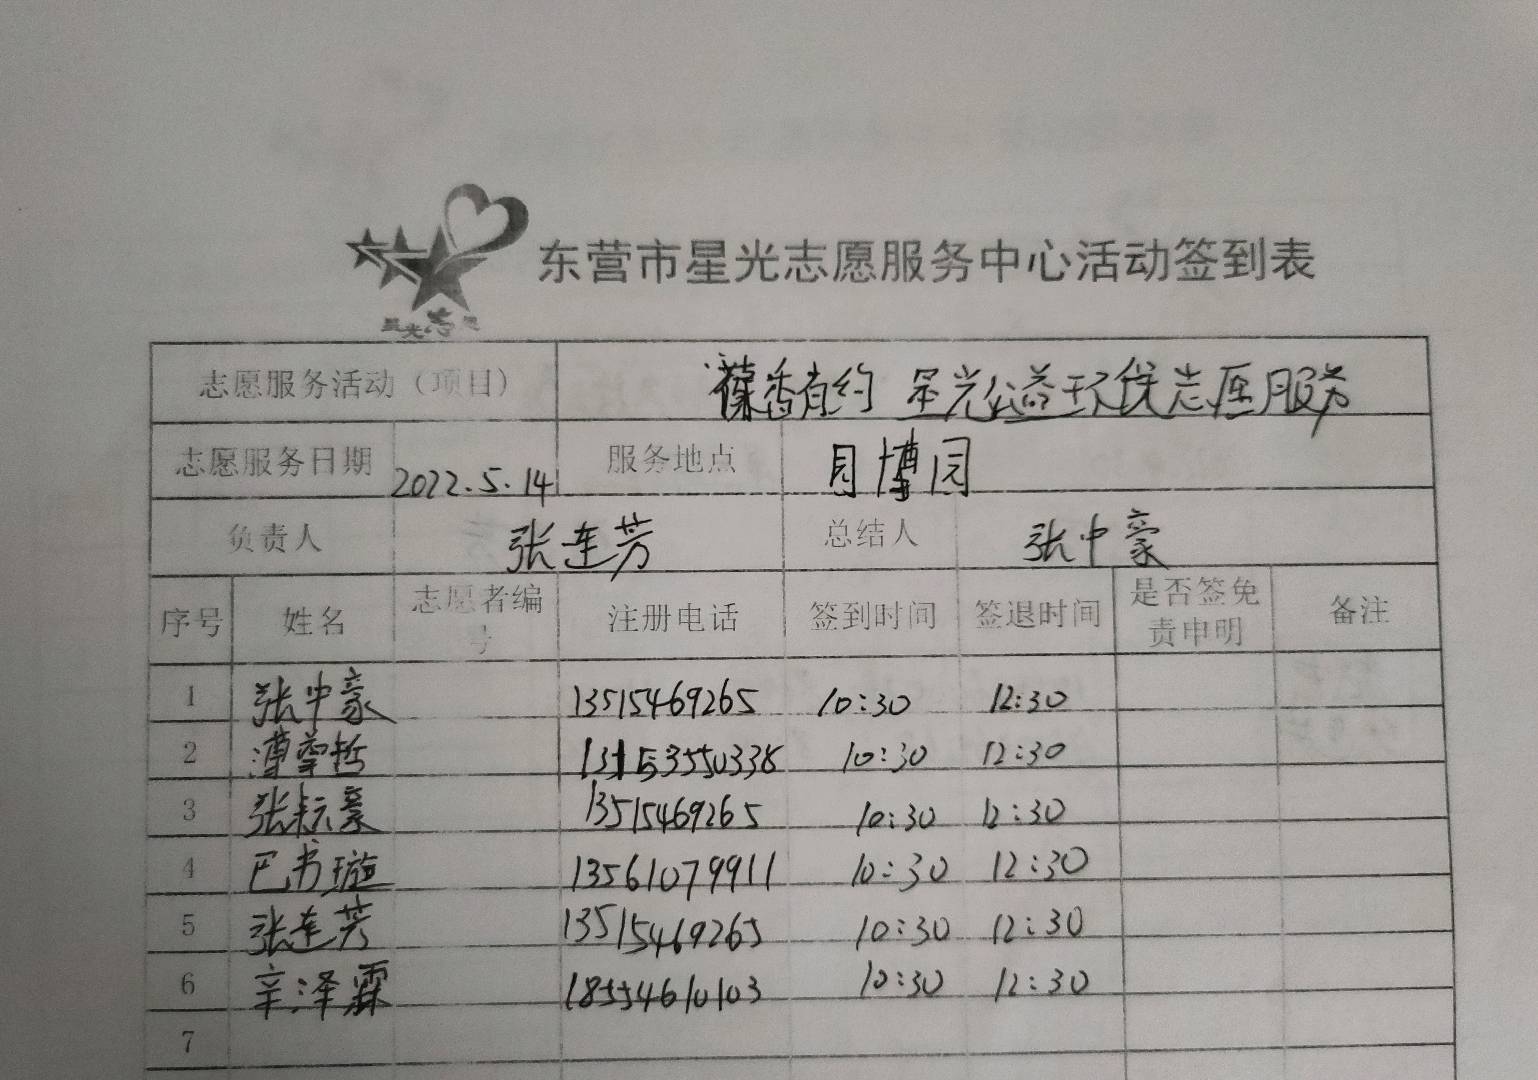 星光志愿
东营市星光志愿服务中心活动签到表
志愿服务活动（项目） 葆香有约 星光公益环保志愿服务
志愿服务日期 2022.5.14 服务地点 月博园
负责人 张连芳 总结人 张中豪
序号 姓名 志愿者编号 注册电话 签到时间 签退时间 是否签免责申明 备注
1 张中豪 13515469265 10:30 12:30
2 哲 13153550338 10:30 12:30
3 张耘豪 13515469265 10:30 12:30
4 巴书璇 13561079911 10:30 12:30
5 张连芳 13515469265 10:30 12:30
6 辛泽霖 18554610103 10:30 12:30
7